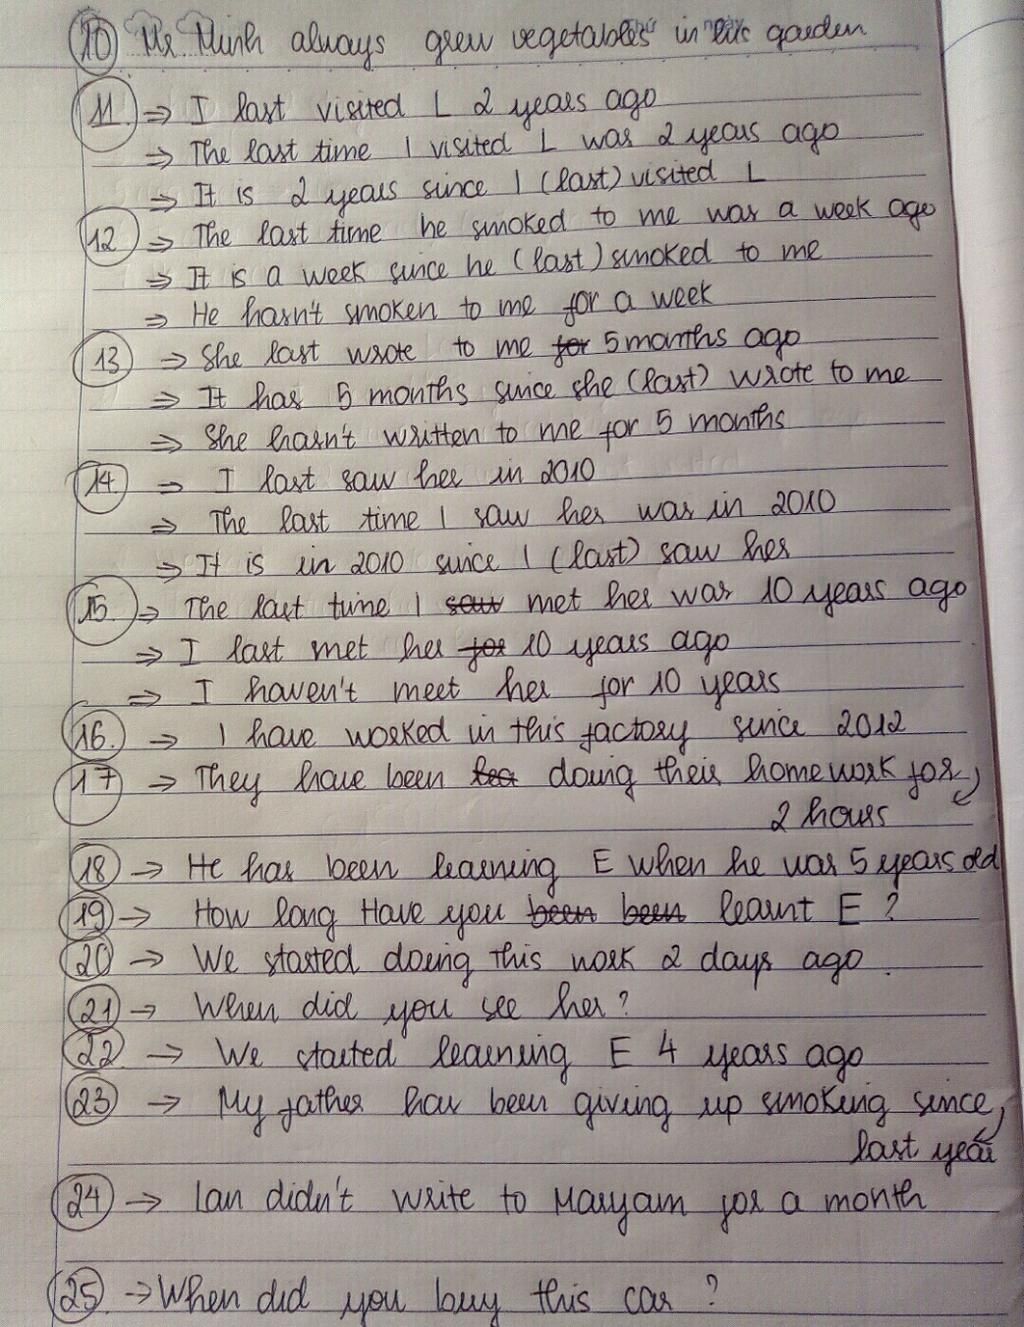 10 Mr Minh always grew vegetables in his garden
11. => I last visited L 2 years ago
=> The last time I visited L was 2 years ago
=> It is 2 years since I (last) visited L
12 => The last time he smoked to me was a week ago
=> It is a week since he (last) smoked to me
=> He hasn't smoken to me for a week
13 => She last wrote to me for 5 months ago
=> It has 5 months since she (last) wrote to me
=> She hasn't written to me for 5 months
14. => I last saw her in 2010
=> The last time I saw her was in 2010
=> It is in 2010 since I (last) saw her
15. => The last time I saw met her was 10 years ago
=> I last met her for 10 years ago
=> I haven't meet her for 10 years
16. -> I have worked in this factory since 2012
17 -> They have been doing their homework for
2 hours
18 -> He has been learning E when he was 5 years old
19 -> How long Have you been been learnt E ?
20 -> We started doing this work 2 days ago.
21 -> When did you see her?
22 -> We started learning E 4 years ago
23 -> My father has been giving up smoking since
last year
24 -> Ian didn't write to Maryam for a month
25. -> When did you buy this car ?